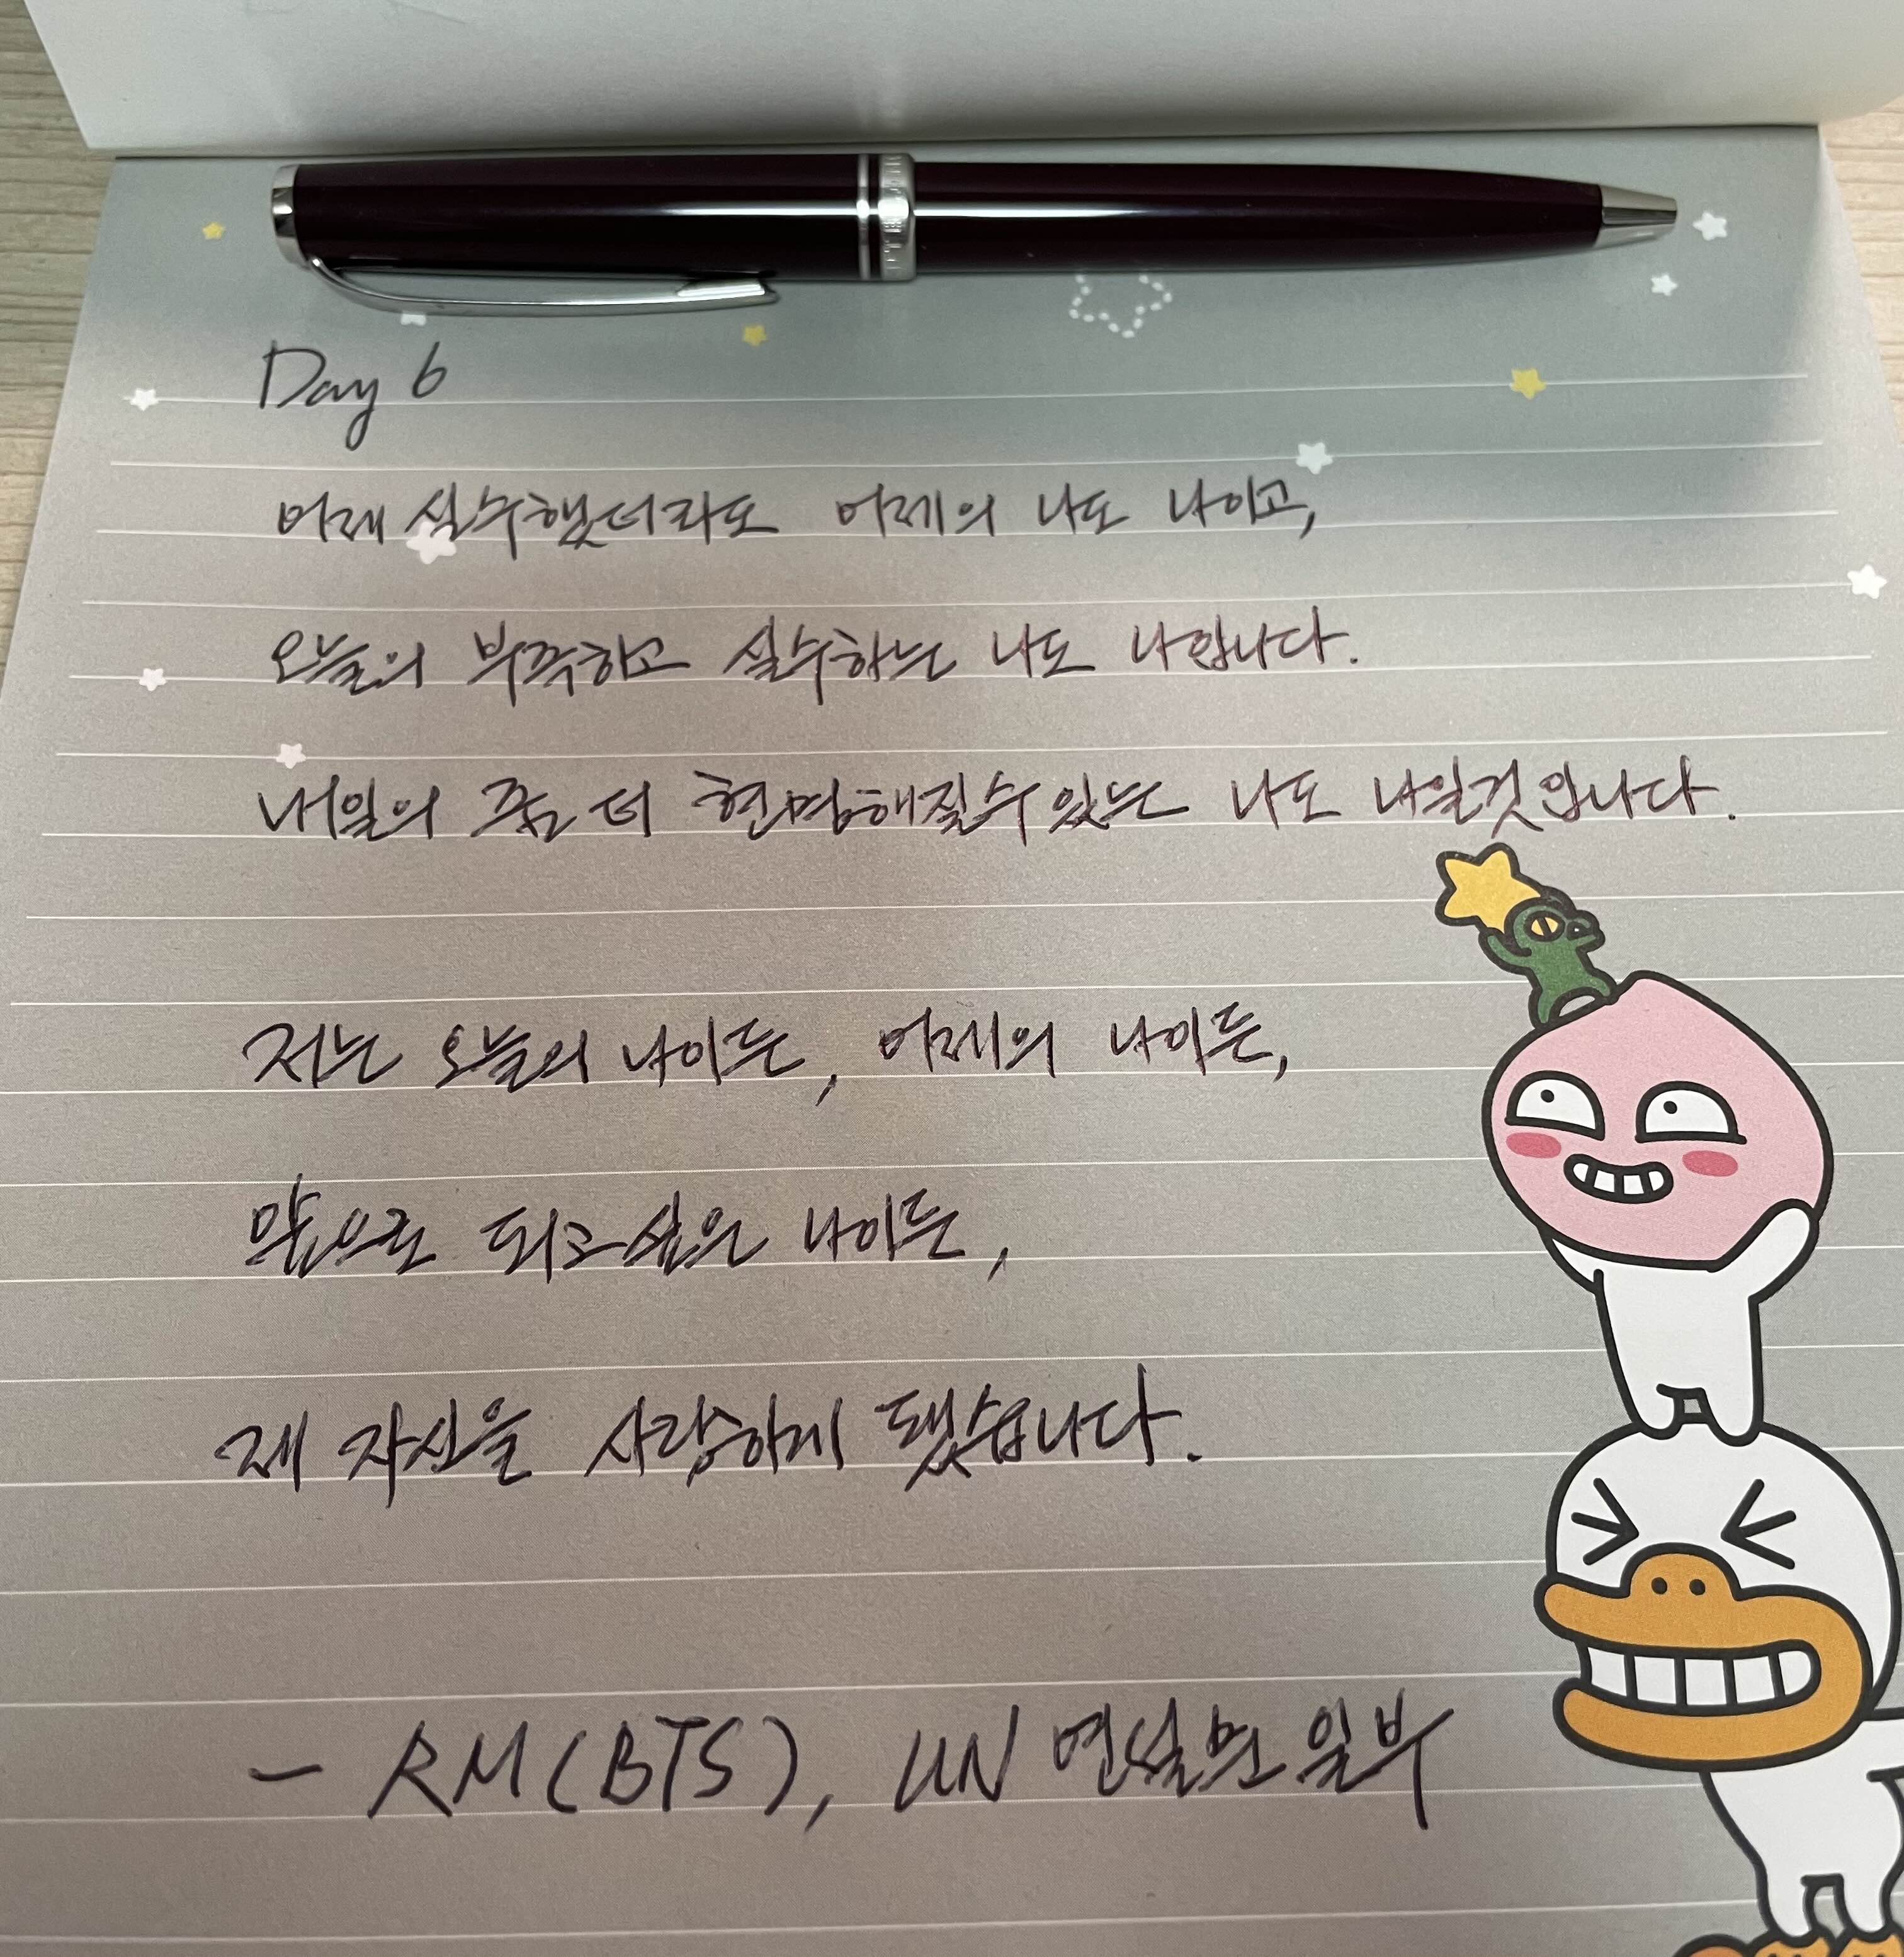 Day 6
어제 실수했더라도 어제의 나도 나이고,
오늘의 부족하고 실수하는 나도 나입니다.
내일의 좀 더 현명해질수있는 나도 나일것입니다.
저는 오늘의 나이든, 어제의 나이든,
앞으로 되고싶은 나이든,
제 자신을 사랑하게 됐습니다.
- RM(BTS), UN 연설문 일부